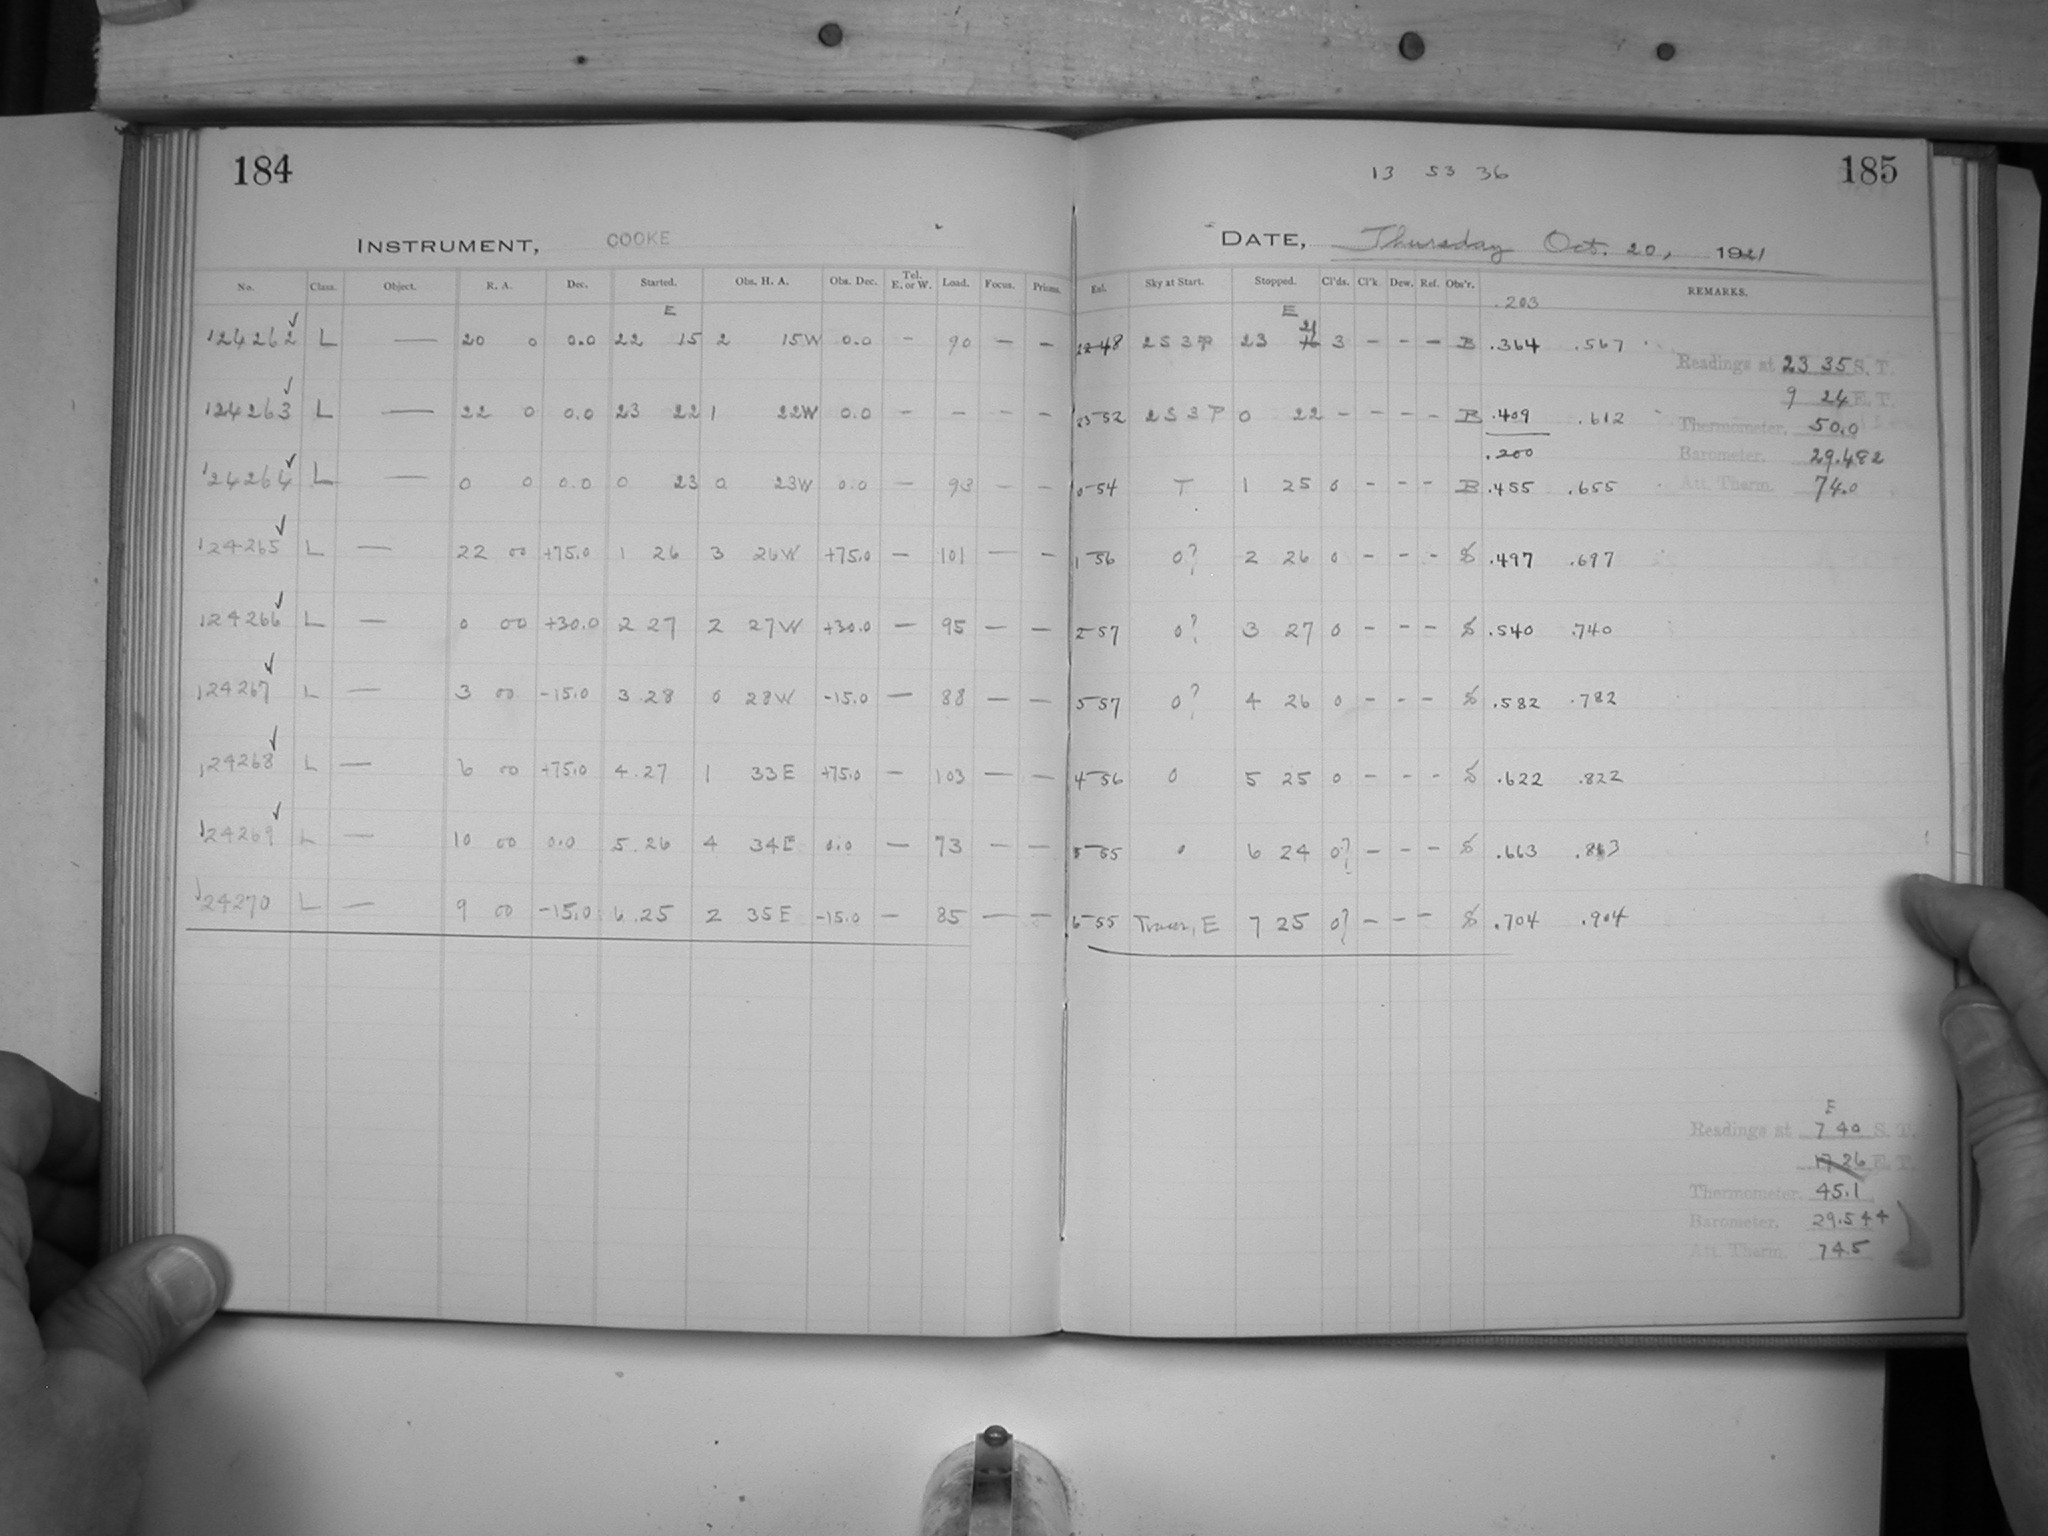 184
13 53 36
185
INSTRUMENT, COOKE
DATE, Thursday Oct. 20, 1921
No. Class. Object. R. A. Dec. Started. Obs. H. A. Obs. Dec. Tel. E. or W. Load. Focus. Prisms. Sky at Start. Stopped. Cl'ds. Cl'k. Dew. Ref. Obs'r. REMARKS.
E E .203
124262 L — 20 0 0.0 22 15 2 15W 0.0 – 90 – – 22-48 2S3P 23 21 3 – – – B .364 .567
Readings at 23 35 S. T.
9 24 E. T.
124263 L — 22 0 0.0 23 22 1 22W 0.0 – – – – 23-52 2S3P 0 22 – – – – B .409 .612
Thermometer. 50.0
.200
Barometer. 29.482
124264 L — 0 0 0.0 0 23 0 23W 0.0 – 93 – – 0-54 T 1 25 0 – – – B .455 .655
Att. Therm. 74.0
124265 L — 22 00 +75.0 1 26 3 26W +75.0 – 101 – – 1-56 0? 2 26 0 – – – S .497 .697
124266 L — 0 00 +30.0 2 27 2 27W +30.0 – 95 – – 2-57 0? 3 27 0 – – – S .540 .740
124267 L — 3 00 -15.0 3.28 0 28W -15.0 – 88 – – 57 0? 4 26 0 – – – S .582 .782
124268 L — 6 00 +75.0 4.27 1 33E +75.0 – 103 – – 4-56 0 5 25 0 – – – S .622 .822
124269 L — 10 00 0.0 5.26 4 34E 0.0 – 73 – – 5-55 0 6 24 0? – – – S .663 .863
124270 L — 9 00 -15.0 6.25 2 35E -15.0 – 85 – – 6-55 E 7 25 0? – – – S .704 .904
E
Readings at 7 40 S. T.
17 26 E. T.
Thermometer. 45.1
Barometer. 29.544
Att. Therm. 74.5